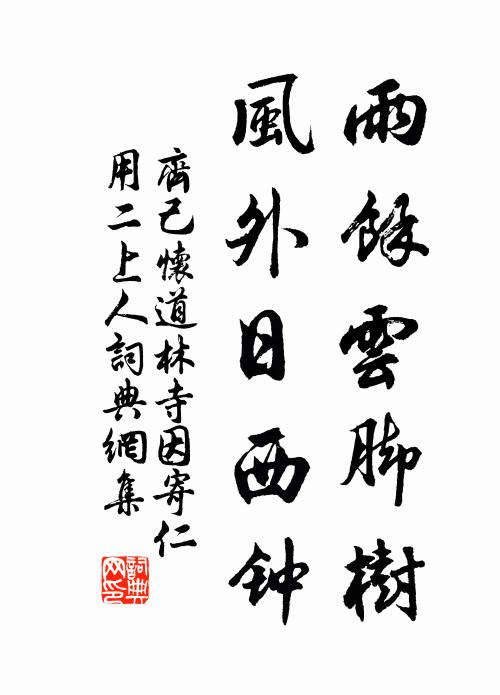 雨餘雲脚樹
風外日西钟
齊己懷道林寺因寄仁
用二上人詞典網集
詞典
网印